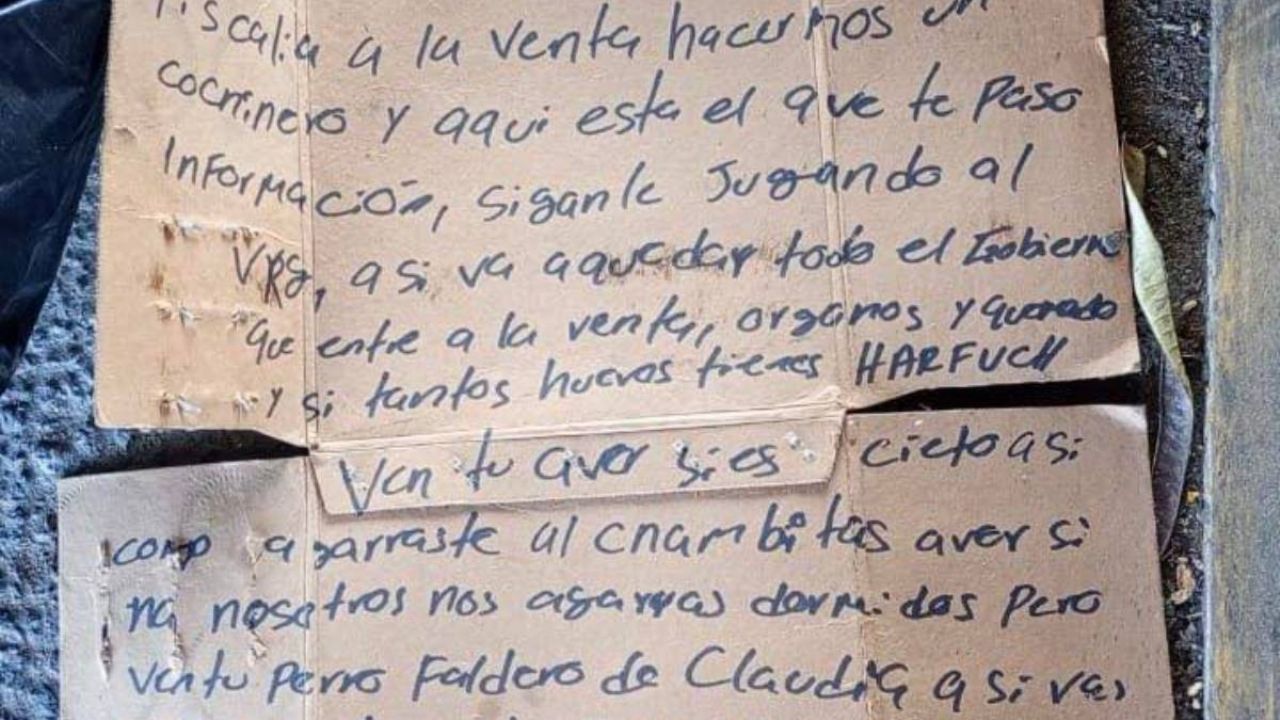 Fiscalia a la venta hacermos un
cocrinero y aqui esta el que te paso
InFormación, siganle Jugando al
VRg, a si va a quedar todo el Gobierno
que entre a la venta, organos y quemado
y si tantos huevos tienes HARFUCH
Ven tu aver si es cieto a si
como agarraste al cnambitas aver si
na nosotros nos agarras dormidos Pero
ven tu Perro Faldero de Claudia a si vas